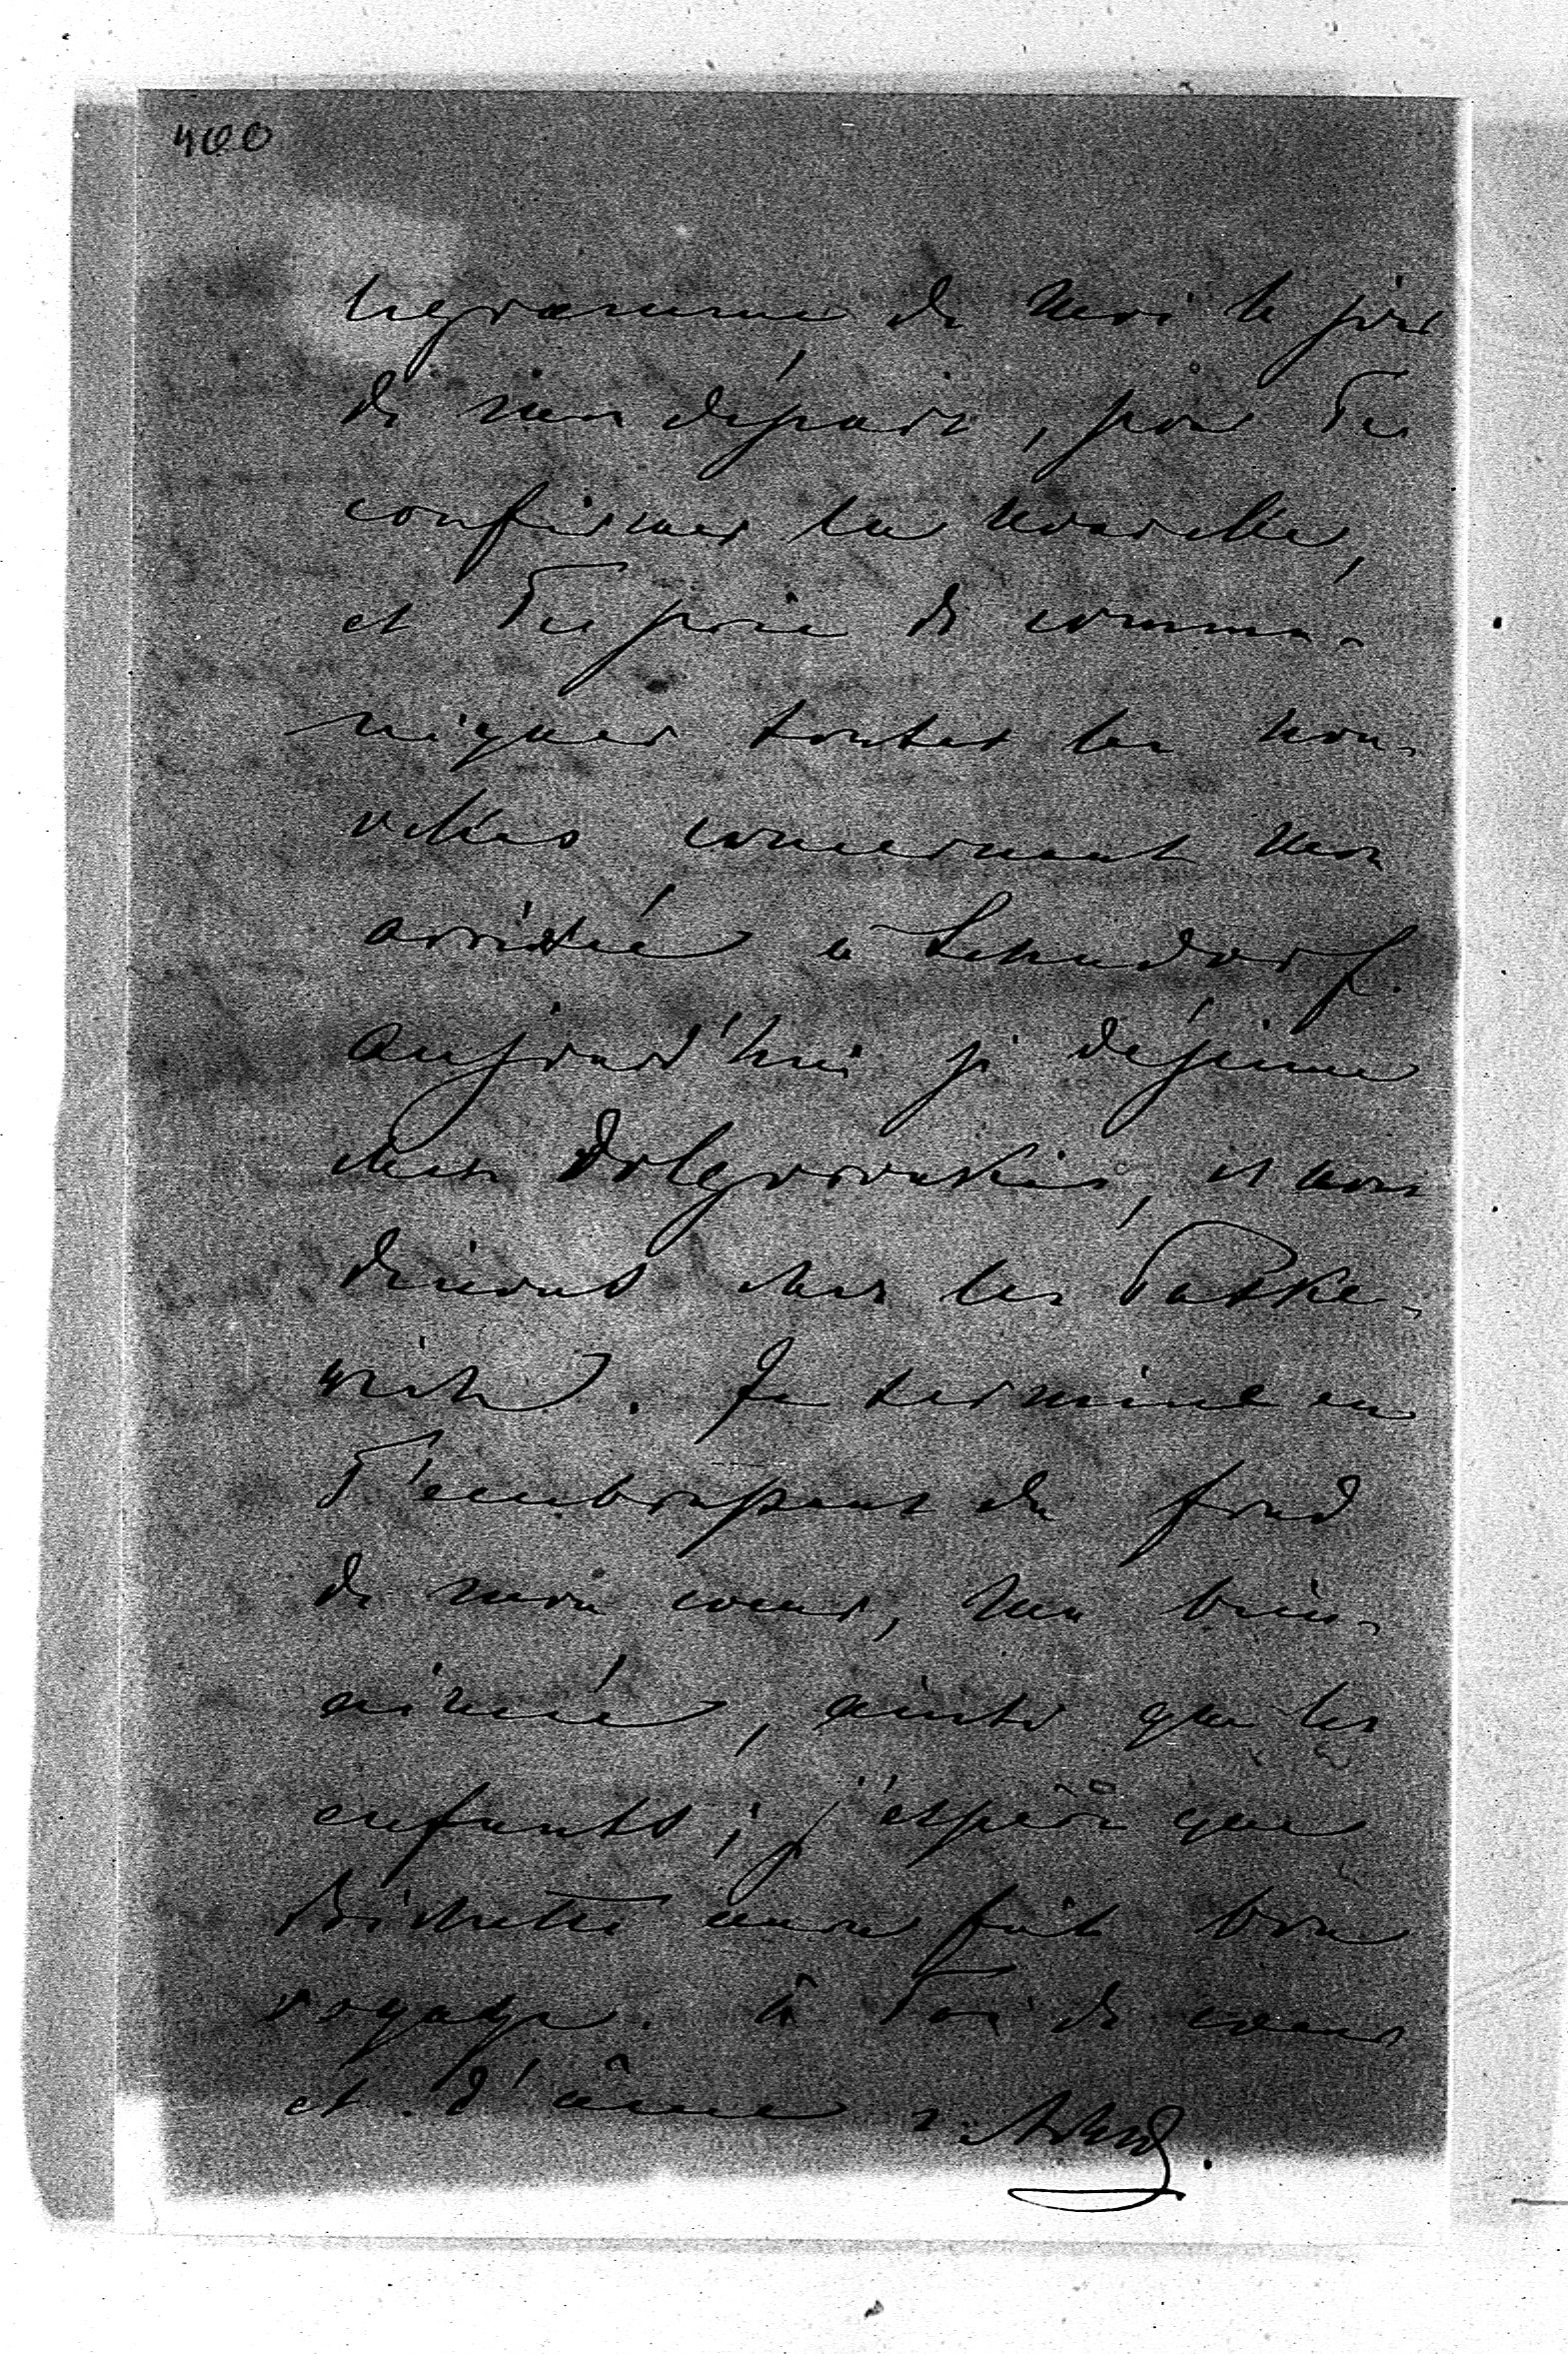 400
legramme de moi le jour
de mon départ, pour Te
confirmer la nouvelle,
et Te prie de commu-
niquer toutes les nou-
velles concernant mon
arrivée à Lehndorf.
aujourd'hui je déjeune
chez Dolgorouki, et nous
dinons chez les Paske-
witch. Je termine en
T'embrassant du fond
de mon coeur, ma bien-
aimée, ainsi que les
enfants; j'espère que
aura fait bon
voyage. à Toi de coeur
et d'âme